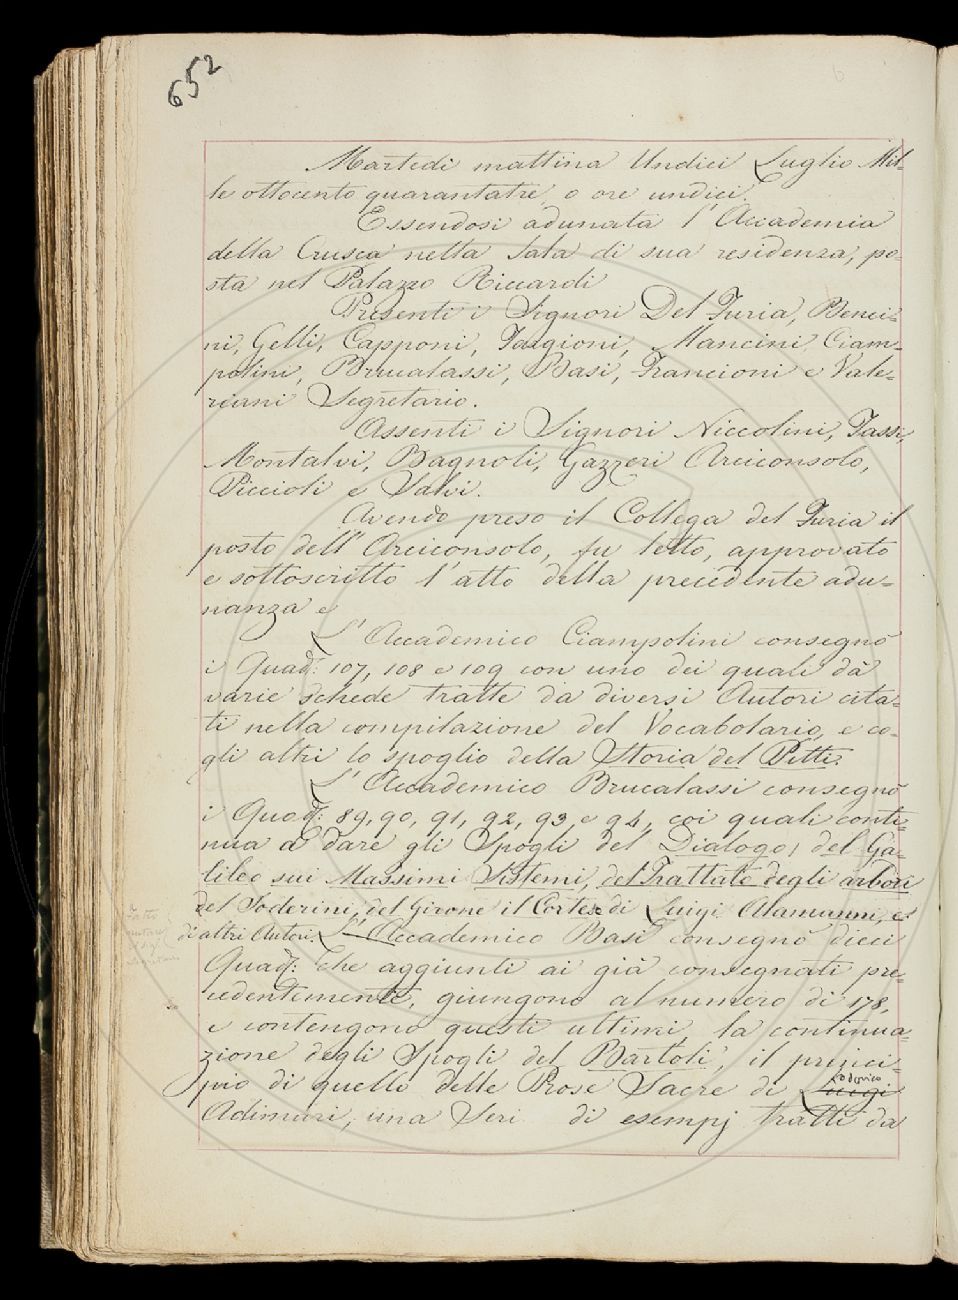 652
Martedì mattina Undici Luglio Mil-
le ottocento quarantatre, o ore undici.
Essendosi adunata l'Accademia
della Crusca nella Sala di sua residenza, po-
sta nel Palazzo Riccardi
Presenti i Signori Del Furia, Benci-
ni, Gelli, Capponi, Targioni, Mancini, Ciam-
polini, Brucalassi, Basi, Francioni e Vale-
riani Segretario.
Assenti i Signori Niccolini, Tassi,
Montalvi, Bagnoli, Gazzeri Arciconsolo,
Piccioli e Salvi.
Avendo preso il Collega del Furia il
posto dell'Arciconsolo, fu letto, approvato
e sottoscritto l'atto della precedente adu-
nanza e
L'Accademico Ciampolini consegnò
i Quad: 107, 108 e 109 con uno dei quali dà
varie schede tratte da diversi Autori cita-
ti nella compilazione del Vocabolario, e co-
gli altri lo spoglio della Storia del Pitti.
L'Accademico Brucalassi consegnò
i Quad: 89, 90, 91, 92, 93 e 94, coi quali conti-
nua a dare gli Spogli del Dialogo, del Ga-
lileo sui Massimi Sistemi, del Trattato degli arbori
del Soderini, del Girone il Cortese di Luigi Alamanni, e
di altri Autori. L'Accademico Basi consegnò dieci
Quad: che aggiunti ai già consegnati pre-
cedentemente, giungono al numero di 178,
e contengono questi ultimi, la continua-
zione degli Spogli del Bartoli, il princi-
pio di quelli delle Prose Sacre di Luigi
Lodovico
Adimari, una Seri di esempj tratti da